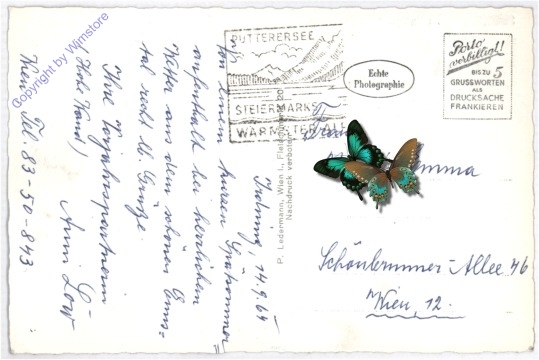 Copyright by Wjmstore
PUTTERERSEE
STEIERMARKS
WÄRMSTER AL
Echte
Photographie
Porto
verbilligt!
BIS ZU 5
GRUSSWORTEN
ALS
DRUCKSACHE
FRANKIEREN
P. Ledermann, Wien I.,
Nachdruck verboten
Irdning, 14.9.64
einem kurzen Spätsommer=
aufenthalt bei herrlichem
Wetter aus dem schönen Enns=
tal sendet lb. Grüße
Ihre Vorjahrspartnerin
(Hohe Wand),
Anni Löw
Wien Tel. 83-50-843
mma
Schönbrunner-Allee 46
Wien, 12.